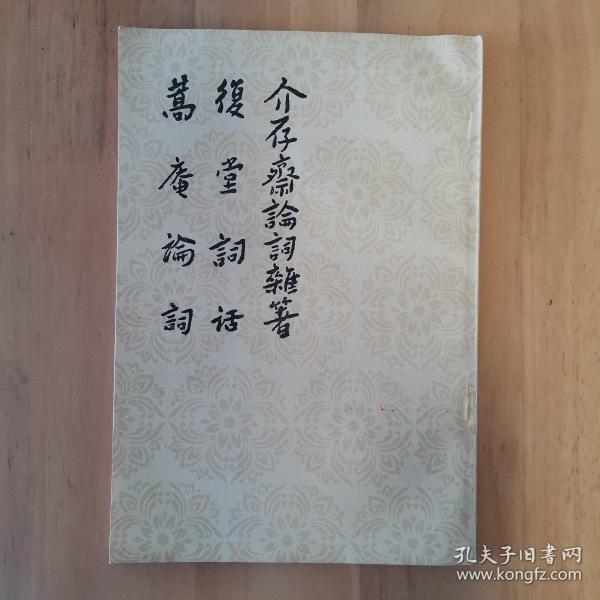 介存齋論詞雜著
復堂詞话
蒿庵論詞
孔夫子旧書网
www.kongfz.com